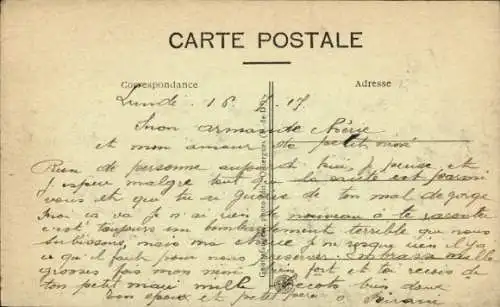 CARTE POSTALE
Correspondance Adresse
Lundi 16 17
Mon armande chérie
et mon amour de petit mimi
Rien de personne aujourd'hui, je pense et
j'espère malgré tout que la santé est parmi
vous et que tu es guérie de ton mal de gorge
Moi ca va je n'ai rien de nouveau à te raconter
c'est toujours un bombardement terrible que nous
subissons, mais ma cherie je ne risque rien il y a
ce qu'il faut pour nous préserver. Embrasse mille
grosses fois mon mimi bien fort et toi recois de
ton petit mari mille bécots bien doux
Ton époux et petit père